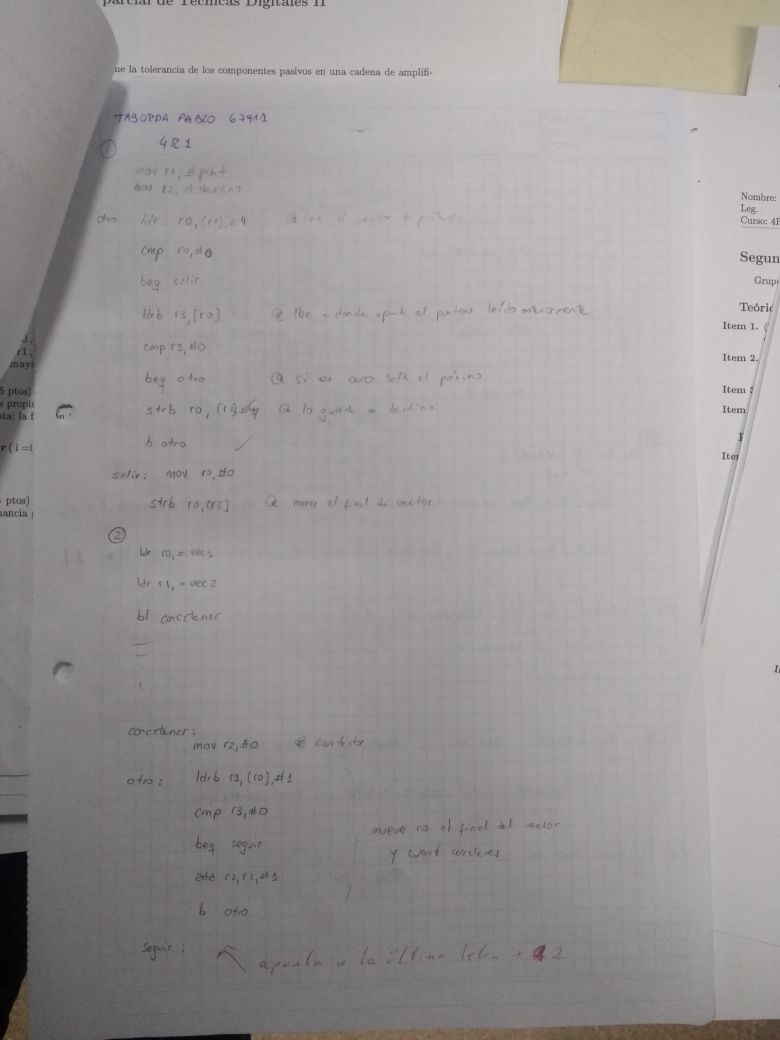 parcial de Técnicas Digitales II
ne la tolerancia de los componentes pasivos en una cadena de amplifi-
TABORDA PABLO 67911
4R1
①
mov r1, #punt
mov r2, #destino
otro ldr r0, [r1], #4 @ lee el vector
cmp r0, #0
beq salir
ldrb r3, [r0] @ lee a donde apunta el puntero leído anteriormente
cmp r3, #0
beq otro @ si es cero salta al próximo
strb r0, [r2], #4 @ lo guarda a destino
b otro
salir: mov r0, #0
strb r0, [r2] @ marca el final de vector
②
ldr r0, = vec1
ldr r1, = vec2
bl concatenar
concatenar:
mov r2, #0 @ contador
otro: ldrb r3, [r0], #1
cmp r3, #0
beq seguir
mueve r0 al final del vector
y cuenta caracteres
add r2, r2, #1
b otro
seguir:
apunta a la última letra + 2
Nombre:
Leg.
Curso: 4R
Segun
Grup
Teóric
Item 1.
Item 2.
Item
Item
Iter
r1,
maye
5 ptos)
s propie
ota: la f
r(i=0
ptos)
ancia